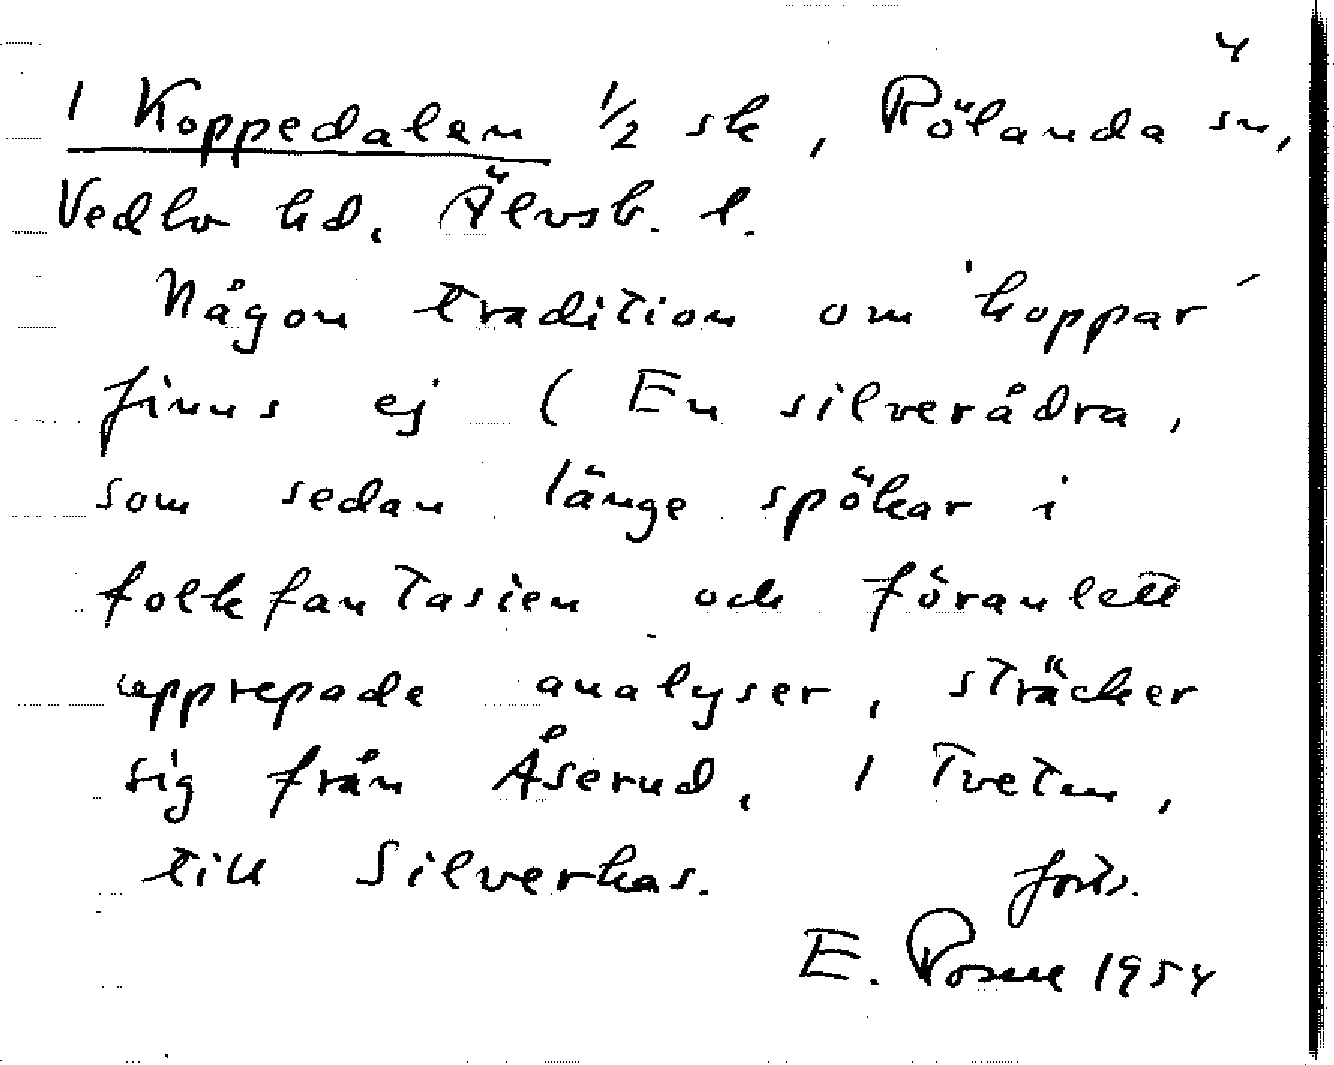 4
1 Koppedalen 1/2 sk, Rölanda sn,
Vedbo hd, Älvsb. l.
Någon tradition om 'koppar'
finns ej (En silverådra,
som sedan länge spökar i
folkfantasien och föranlett
upprepade analyser, sträcker
sig från Åserud, 1 Tveten,
till Silverkas. forts.
E. 1954